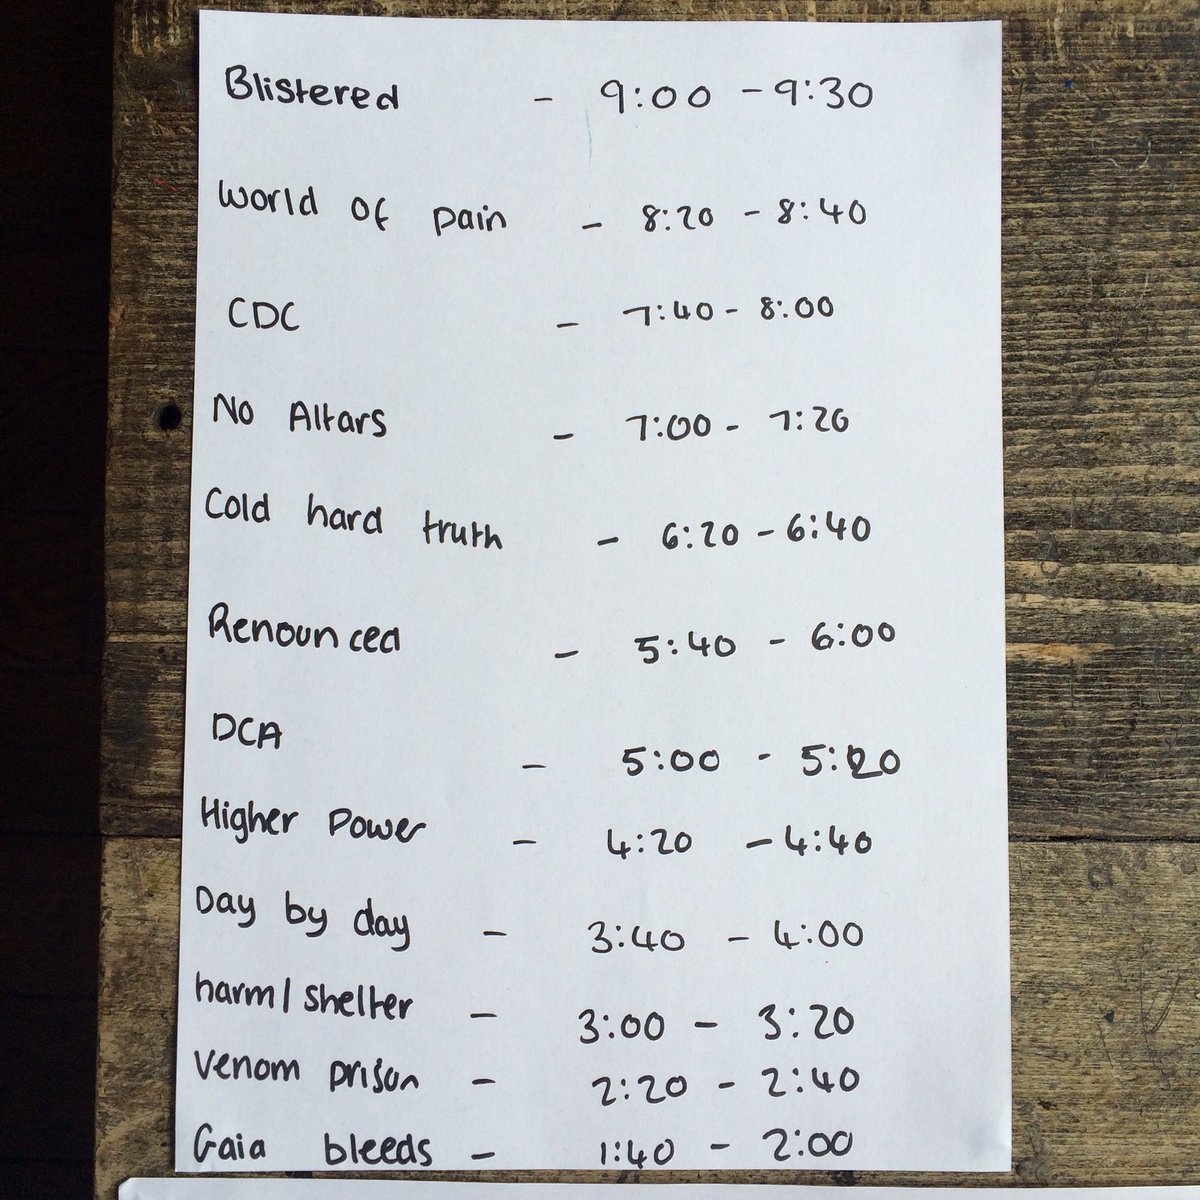 Blistered - 9:00 - 9:30
World of pain - 8:20 - 8:40
CDC - 7:40 - 8:00
No Altars - 7:00 - 7:20
Cold hard truth - 6:20 - 6:40
Renounced - 5:40 - 6:00
DCA - 5:00 - 5:20
Higher Power - 4:20 - 4:40
Day by day - 3:40 - 4:00
harm/shelter - 3:00 - 3:20
Venom prison - 2:20 - 2:40
Gaia bleeds - 1:40 - 2:00